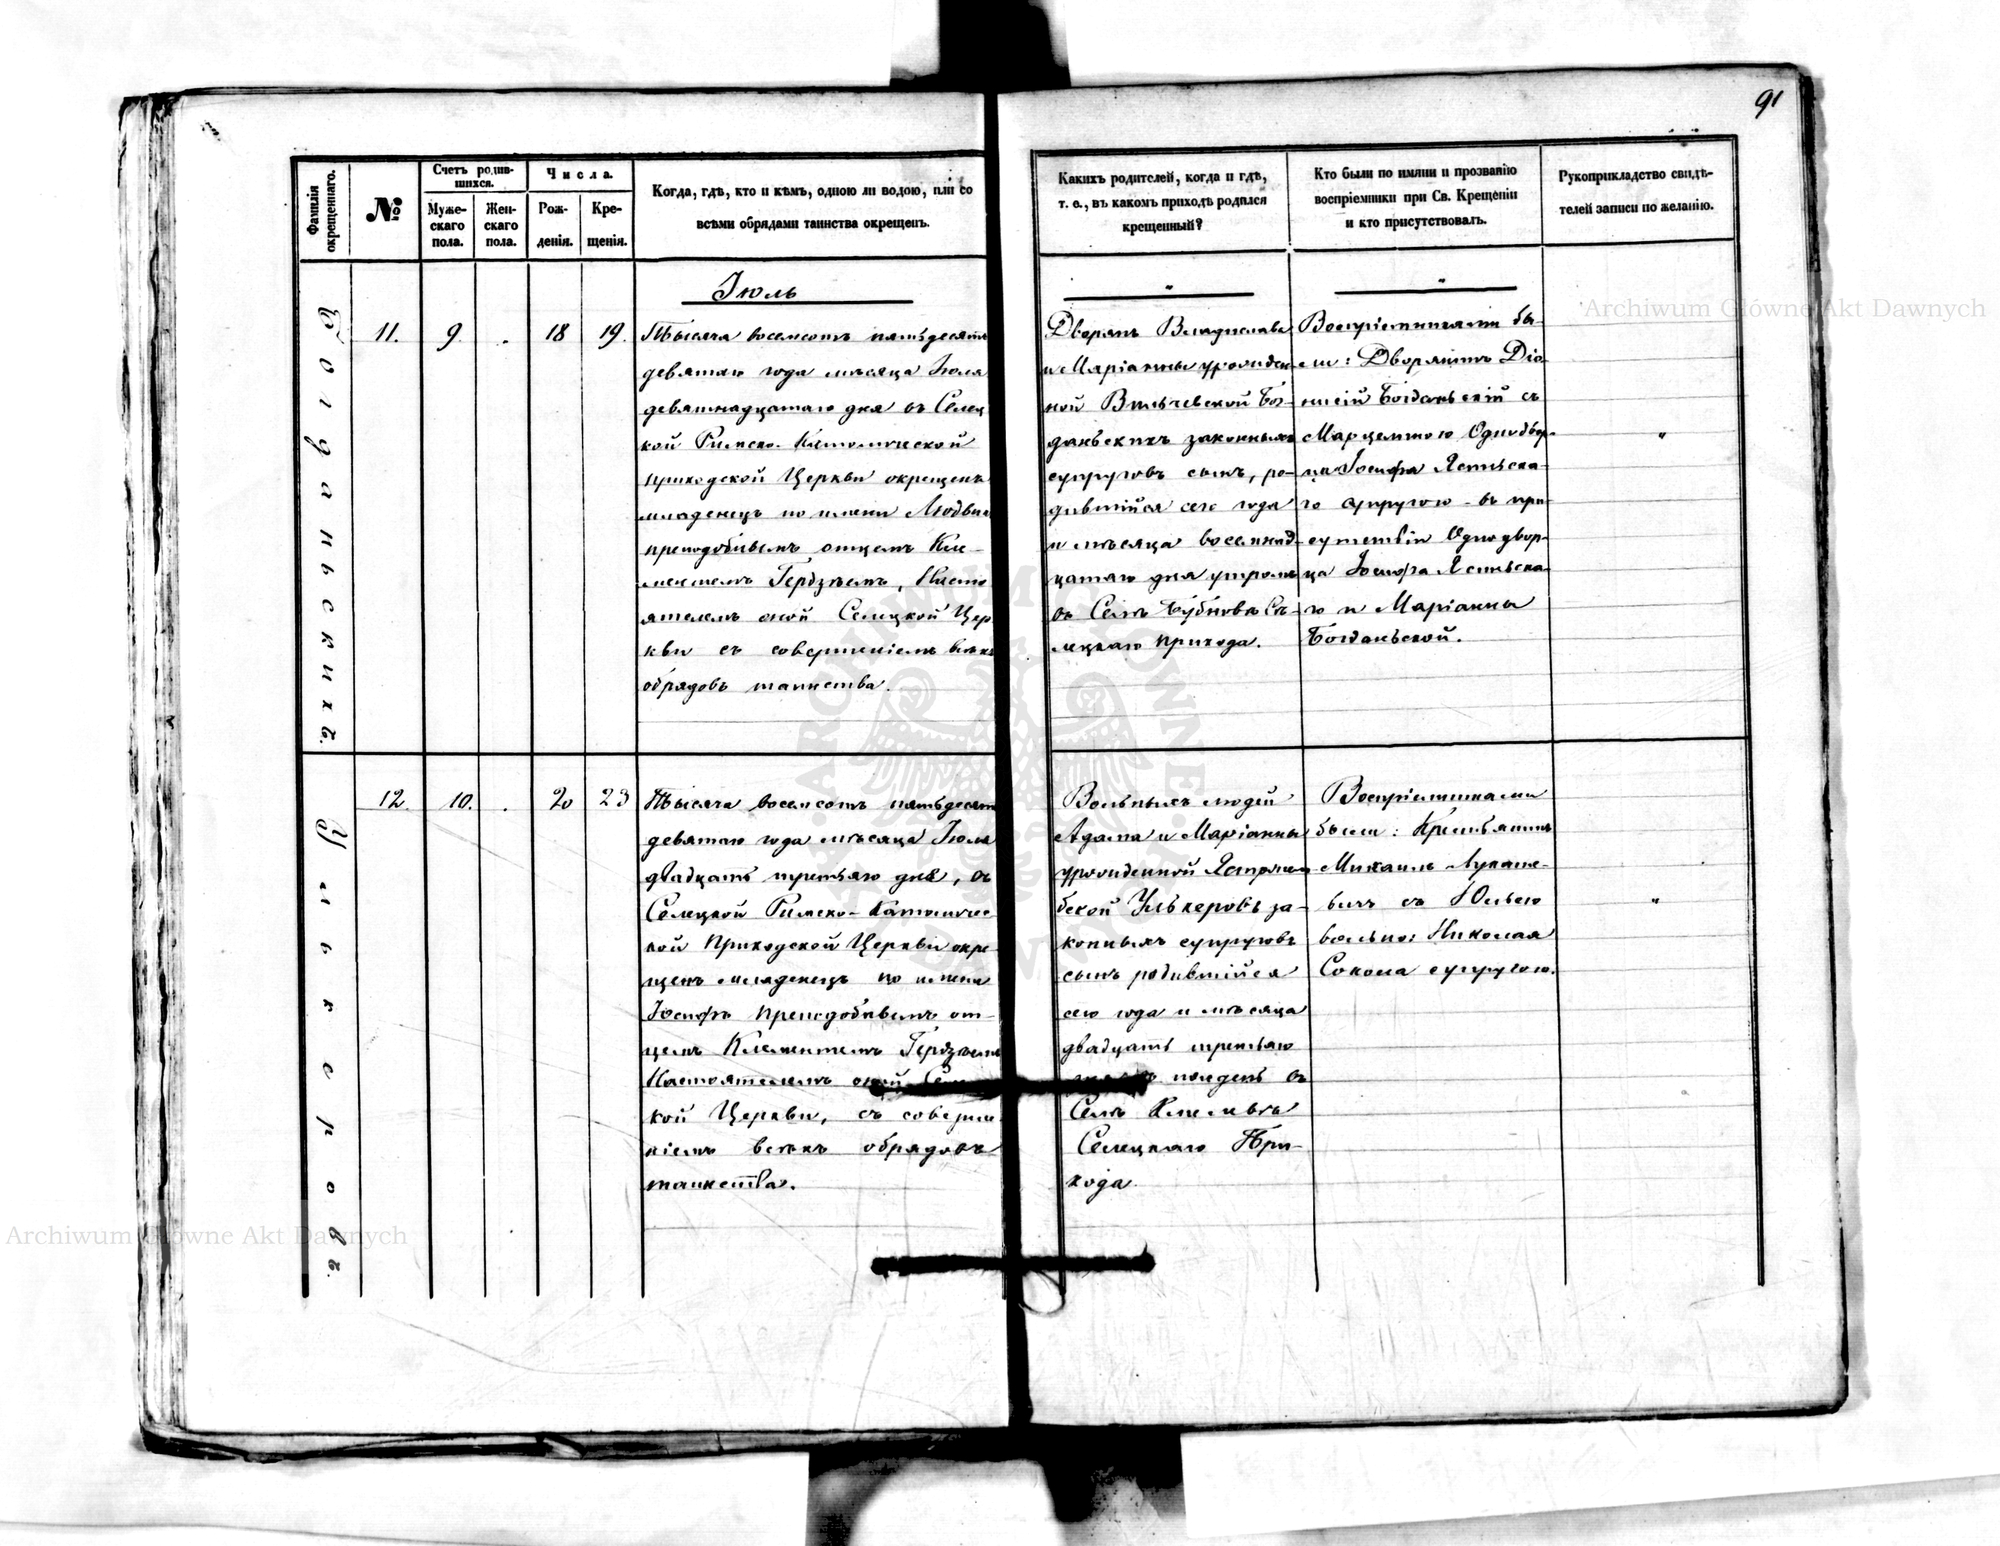 91
Фамилія окрещеннаго.
№
Счетъ родив-
шихся.
Муже-
скаго
пола.
Жен-
скаго
пола.
Числа.
Рож-
денія.
Кре-
щенія.
Когда, гдѣ, кто и кѣмъ, одною ли водою, или со
всѣми обрядами таинства окрещенъ.
Какихъ родителей, когда и гдѣ,
т. е., въ какомъ приходѣ родился
крещенный?
Кто были по имяни и прозванію
воспріемники при Св. Крещеніи
и кто присутствовалъ.
Рукоприкладство свидѣ-
телей записи по желанію.
Іюль
Богданьскихъ
11. 9. . 18 19.
Тысяча восемсотъ пятьдесятъ
девятаго года мѣсяца Іюля
девятнадцатаго дня въ Селец
кой Римско-Католической
приходской Церкви окрещенъ
младенецъ по имени
преподобнымъ отцемъ Кле-
ментемъ Гердзѣемъ, Насто
ятелемъ оной Селецкой Цер
кви съ совершеніемъ всѣхъ
обрядовъ таинства.
Дворянъ Владислава
и Маріанны урожден
ной Вильчевской Бог-
даньскихъ законныхъ
супруговъ сынъ, ро-
дившійся сего года
и мѣсяца восемнад-
цатаго дня утромъ
въ Селѣ Бубновѣ Се-
лецкаго прихода.
Воспріемниками бы-
ли: Дворянинъ Діо
нисій Богданьскій съ
Марцеллою Однодвор-
ца Іосифа
го супругою въ при
сутствіи Однодвор-
ца Іосифа
го и Маріанны
Богданьской.
"
Ульнеровъ
12. 10. . 20 23
Тысяча восемсотъ пятьдесятъ
девятаго года мѣсяца Іюля
двадцать третьяго дня, въ
Селецкой Римско-Католичес
кой Приходской Церкви окре
щенъ младенецъ по имени
Іосифъ преподобнымъ от-
цемъ Клементемъ Гердзѣемъ
Настоятелемъ оной
кой Церкви, съ соверше
ніемъ всѣхъ обрядовъ
таинства.
Вольныхъ людей
Адама и Маріанны
урожденной
бской Ульнеровъ за-
конныхъ супруговъ
сынъ родившійся
сего года и мѣсяца
двадцать третьяго
въ
Селѣ
Селецкаго При-
хода.
Воспріемниками
были: Крестьянинъ
Михаилъ Лукаше-
вичъ съ Юліею
вольно: Николая
Сокола супругою.
"
Archiwum Główne Akt Dawnych
Archiwum Główne Akt Dawnych